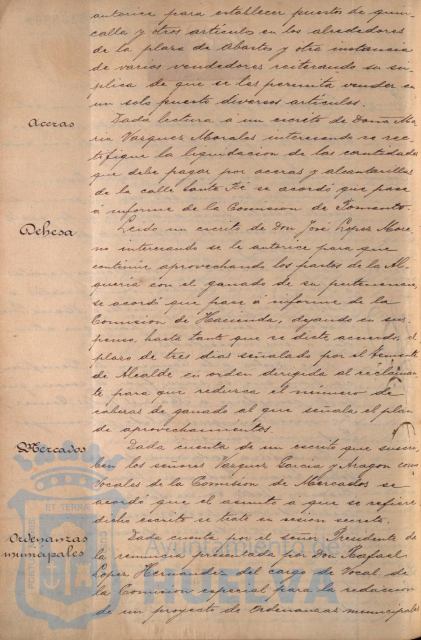 autorice para establecer puestos de quin-
calla y otros artículos en los alrededores
de la plaza de Abastos y otra instancia
de varios vendedores reiterando su sú-
plica de que se les permita vender en
un solo puesto diversos artículos.
Aceras
Dada lectura á un escrito de Doña Ma-
ria Vazquez Morales interesando se rec-
tifique la liquidacion de las cantidades
que debe pagar por aceras y alcantarillas
de la calle Santa Fé se acordó que pase
á informe de la Comision de Fomento.
Dehesa
Leido un escrito de Don José Lopez More-
no interesando se le autorice para que
continúe aprovechando los pastos de la Al-
queria con el ganado de su pertenencia,
se acordó que pase á informe de la
Comision de Hacienda, dejando en sus-
penso, hasta tanto que se dicte acuerdo, el
plazo de tres dias señalado por el Teniente
de Alcalde en orden dirigida al reclaman-
te para que reduzca el número de
cabezas de ganado al que señala el plan
de aprovechamientos.
Mercados
Dada cuenta de un escrito que suscri-
ben los señores Vazquez Garcia y Aragon como
Vocales de la Comision de Mercados se
acordó que el asunto á que se refiere
dicho escrito se trate en sesion secreta.
Ordenanzas
municipales
Dada cuenta por el señor Presidente de
la renuncia presentada por Don Rafael
Lopez Hernandez del cargo de Vocal de
la Comision especial para la redaccion
de un proyecto de Ordenanzas municipales
ET TERRÆ
PORTUS MARIS
CUSTODIA
Ayuntamiento de
HUELVA